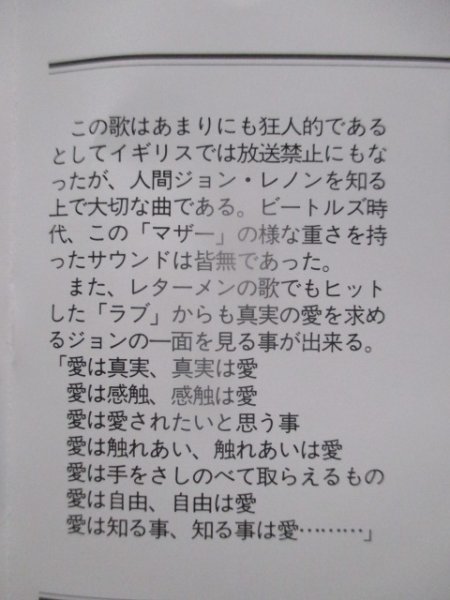 この歌はあまりにも狂人的である
としてイギリスでは放送禁止にもな
ったが、人間ジョン・レノンを知る
上で大切な曲である。ビートルズ時
代、この「マザー」の様な重さを持
ったサウンドは皆無であった。
また、レターメンの歌でもヒット
した「ラブ」からも真実の愛を求め
るジョンの一面を見る事が出来る。
「愛は真実、真実は愛
愛は感触、感触は愛
愛は愛されたいと思う事
愛は触れあい、触れあいは愛
愛は手をさしのべて取らえるもの
愛は自由、自由は愛
愛は知る事、知る事は愛………」